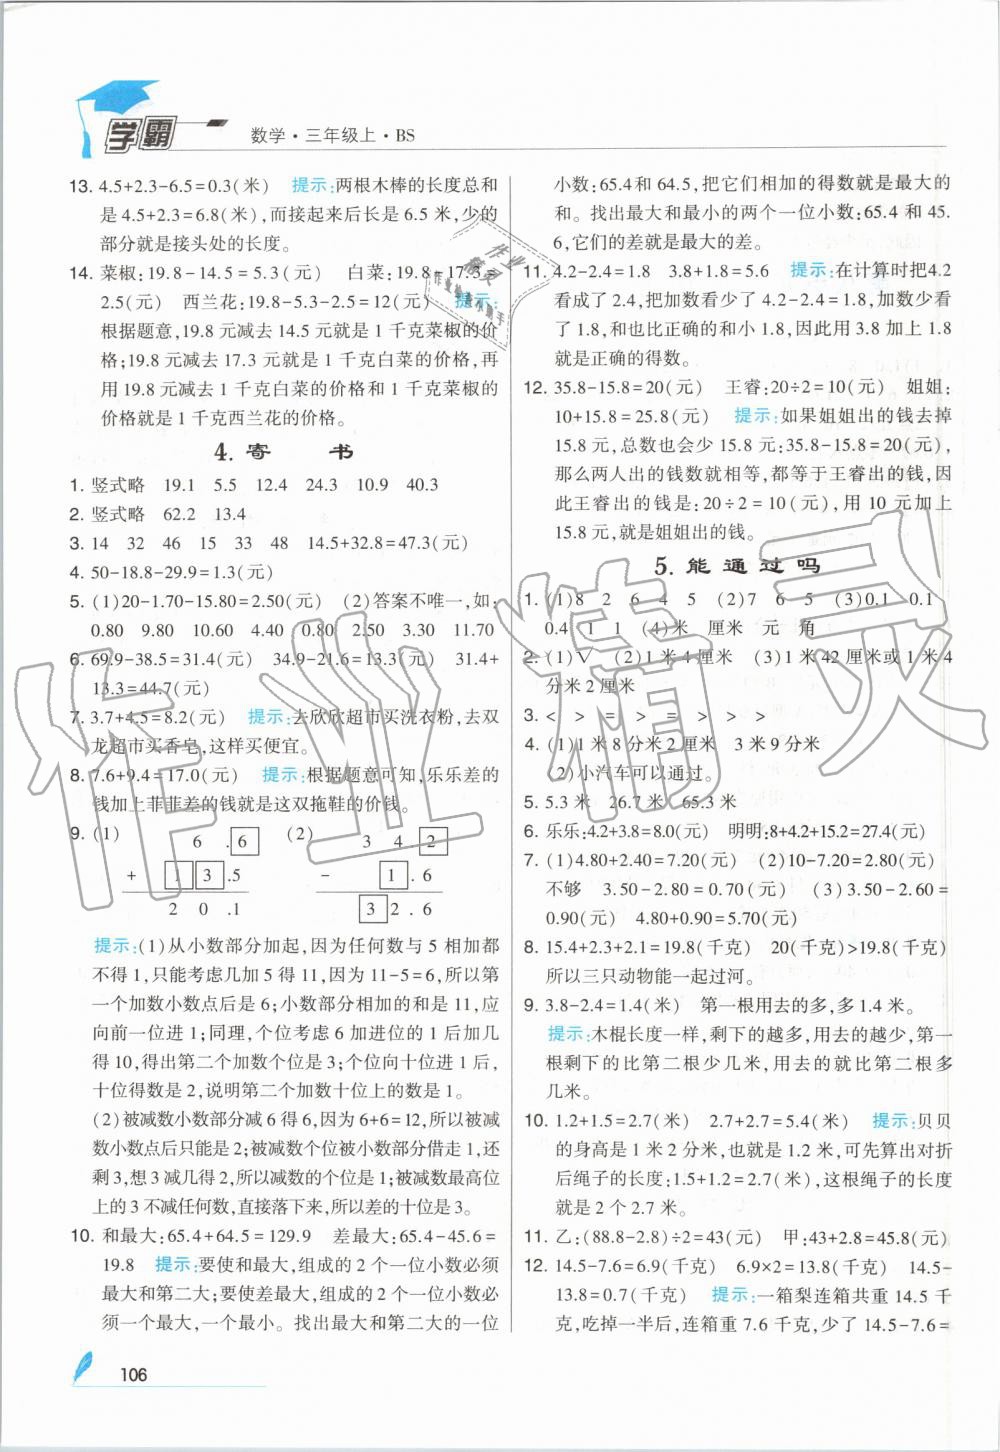 学霸
数学·三年级上·BS
13. 4.5+2.3-6.5=0.3(米) 提示:两根木棒的长度总和
是 4.5+2.3=6.8(米),而接起来后长是 6.5 米,少的
部分就是接头处的长度。
14. 菜椒:19.8-14.5=5.3(元) 白菜:19.8-17.3=
2.5(元) 西兰花:19.8-5.3-2.5=12(元) 提示:
根据题意,19.8 元减去 14.5 元就是 1 千克菜椒的价
格;19.8 元减去 17.3 元就是 1 千克白菜的价格,再
用 19.8 元减去 1 千克白菜的价格和 1 千克菜椒的
价格就是 1 千克西兰花的价格。
4. 寄 书
1. 竖式略 19.1 5.5 12.4 24.3 10.9 40.3
2. 竖式略 62.2 13.4
3. 14 32 46 15 33 48 14.5+32.8=47.3(元)
4. 50-18.8-29.9=1.3(元)
5. (1)20-1.70-15.80=2.50(元) (2)答案不唯一,如:
0.80 9.80 10.60 4.40 0.80 2.50 3.30 11.70
6. 69.9-38.5=31.4(元) 34.9-21.6=13.3(元) 31.4+
13.3=44.7(元)
7. 3.7+4.5=8.2(元) 提示:去欣欣超市买洗衣粉,去双
龙超市买香皂,这样买便宜。
8. 7.6+9.4=17.0(元) 提示:根据题意可知,乐乐差的
钱加上菲菲差的钱就是这双拖鞋的价钱。
9. (1) 6 .6 (2) 3 4 .2
+ 1 3 .5 - 1 .6
2 0 .1 3 2 .6
提示:(1)从小数部分加起,因为任何数与 5 相加都
不得 1,只能考虑几加 5 得 11,因为 11-5=6,所以第
一个加数小数点后是 6;小数部分相加的和是 11,应
向前一位进 1;同理,个位考虑 6 加进位的 1 后加几
得 10,得出第二个加数个位是 3;个位向十位进 1 后,
十位得数是 2,说明第二个加数十位上的数是 1。
(2)被减数小数部分减 6 得 6,因为 6+6=12,所以被减
数小数点后只能是 2;被减数个位被小数部分借走 1,还
剩 3,想 3 减几得 2,所以减数的个位是 1;被减数最高位
上的 3 不减任何数,直接落下来,所以差的十位是 3。
10. 和最大:65.4+64.5=129.9 差最大:65.4-45.6=
19.8 提示:要使和最大,组成的 2 个一位小数必须
最大和第二大;要使差最大,组成的 2 个一位小数必
须一个最大,一个最小。找出最大和第二大的一位
小数:65.4 和 64.5,把它们相加的得数就是最大的
和。找出最大和最小的两个一位小数:65.4 和 45.
6,它们的差就是最大的差。
11. 4.2-2.4=1.8 3.8+1.8=5.6 提示:在计算时把4.2
看成了 2.4,把加数少看了 4.2-2.4=1.8,加数少看
了 1.8,和也比正确的和小 1.8,因此用 3.8 加上 1.8
就是正确的得数。
12. 35.8-15.8=20(元) 王睿:20÷2=10(元) 姐姐:
10+15.8=25.8(元) 提示:如果姐姐出的钱去掉
15.8 元,总数也会少 15.8 元:35.8-15.8=20(元),
那么两人出的钱数就相等,都等于王睿出的钱,因
此王睿出的钱是:20÷2=10(元),用 10 元加上
15.8 元,就是姐姐出的钱。
5. 能 通 过 吗
1. (1)8 2 6 4 5 (2)7 6 5 (3)0.1 0.1
0.4 1 1 (4)米 厘米 元 角
2. (1)√ (2)1 米 4 厘米 (3)1 米 42 厘米或 1 米 4
分米 2 厘米
3. < > = > = > > >
4. (1)1 米 8 分米 2 厘米 3 米 9 分米
(2)小汽车可以通过。
5. 5.3 米 26.7 米 65.3 米
6. 乐乐:4.2+3.8=8.0(元) 明明:8+4.2+15.2=27.4(元)
7. (1)4.80+2.40=7.20(元) (2)10-7.20=2.80(元)
不够 3.50-2.80=0.70(元) (3)3.50-2.60=
0.90(元) 4.80+0.90=5.70(元)
8. 15.4+2.3+2.1=19.8(千克) 20(千克)>19.8(千克)
所以三只动物能一起过河。
9. 3.8-2.4=1.4(米) 第一根用去的多,多 1.4 米。
提示:木棍长度一样,剩下的越多,用去的越少,第一
根剩下的比第二根少几米,用去的就比第二根多
几米。
10. 1.2+1.5=2.7(米) 2.7+2.7=5.4(米) 提示:贝贝
的身高是 1 米 2 分米,也就是 1.2 米,可先算出对折
后绳子的长度:1.5+1.2=2.7(米),这根绳子的长度
就是 2 个 2.7 米。
11. 乙:(88.8-2.8)÷2=43(元) 甲:43+2.8=45.8(元)
12. 14.5-7.6=6.9(千克) 6.9×2=13.8(千克) 14.5-
13.8=0.7(千克) 提示:一箱梨连箱共重 14.5 千
克,吃掉一半后,连箱重 7.6 千克,少了 14.5-7.6=
106
作业精灵
作业精灵